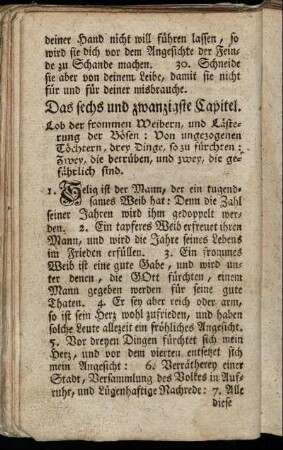 deiner Hand nicht will führen lassen, so
wird sie dich vor dem Angesichte der Fein-
de zu Schande machen. 30. Schneide
sie aber von deinem Leibe, damit sie nicht
für und für deiner misbrauche.
Das sechs und zwanzigste Capitel.
Lob der frommen Weibern, und Läste-
rung der Bösen: Von ungezogenen
Töchtern, drey Dinge, so zu fürchten:
Zwey, die betrüben, und zwey, die ge-
fährlich sind.
1. Selig ist der Mann, der ein tugend-
sames Weib hat: Denn die Zahl
seiner Jahren wird ihm gedoppelt wer-
den. 2. Ein tapferes Weib erfreuet ihren
Mann, und wird die Jahre seines Lebens
im Frieden erfüllen. 3. Ein frommes
Weib ist eine gute Gabe, und wird un-
ter denen, die GOtt fürchten, einem
Mann gegeben werden für seine gute
Thaten. 4. Er sey aber reich oder arm,
so ist sein Herz wohl zufrieden, und haben
solche Leute allezeit ein fröhliches Angesicht.
5. Vor dreyen Dingen fürchtet sich mein
Herz, und vor dem vierten entsetzet sich
mein Angesicht: 6. Verrätherey einer
Stadt, Versammlung des Volkes in Auf-
ruhr, und Lügenhaftige Nachrede: 7. Alle
diese